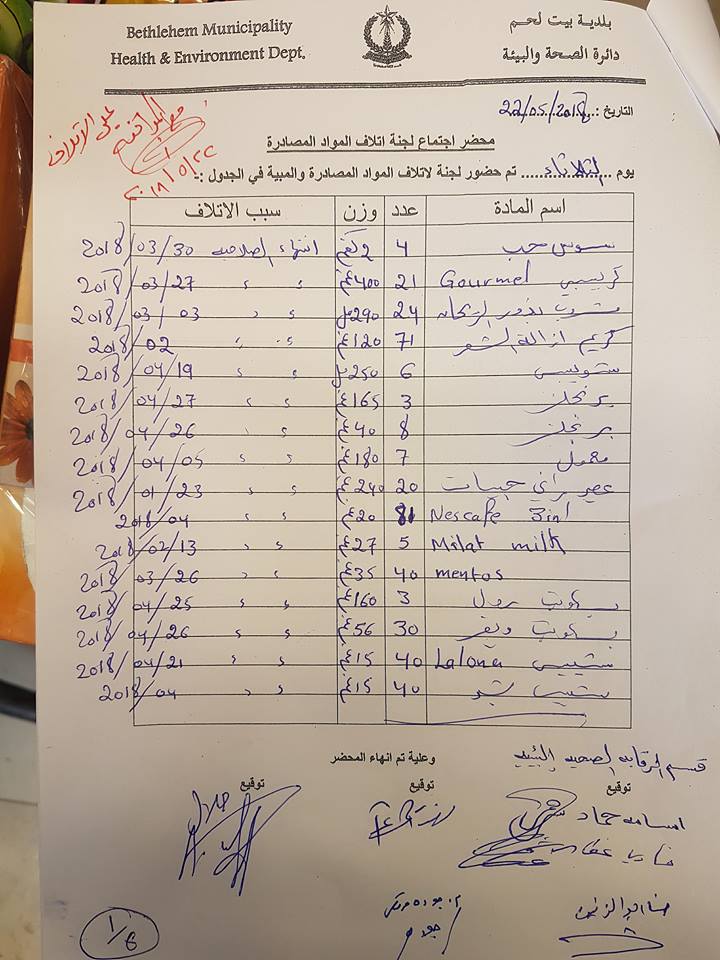 Bethlehem Municipality
Health & Environment Dept.
بلدية بيت لحم
دائرة الصحة والبيئة
التاريخ : 22/05/2018
على الاتلاف
2018/5/22
محضر اجتماع لجنة اتلاف المواد المصادرة
يوم الثلاثاء تم حضور لجنة لاتلاف المواد المصادرة والمبية في الجدول :-
اسم المادة عدد وزن سبب الاتلاف
4 2 كغم انتهاء الصلاحيه 2018/03/30
كريسبي Gourmet 21 400غم " " 2018/03/27
مشروب بذور الريحان 24 290مل " " 2018/03/03
كريم ازالة الشعر 71 120غم " " 2018/02
6 250مل " " 2018/04/19
برنجلز 3 165غم " " 2018/04/27
برنجلز 8 40غم " " 2018/04/26
معمول 7 180غم " " 2018/04/05
عصير راني حبيبات 20 240غم " " 2018/01/23
Nescafe 3in1 81 20غم " " 2018/04
Milat milk 5 27غم " " 2018/02/13
mentos 40 35غم " " 2018/03/26
بسكويت رول 3 160غم " " 2018/04/25
بسكويت ويفر 30 56غم " " 2018/04/26
شيبس Lalona 40 15غم " " 2018/04/21
شيبس 40 15غم " " 2018/04
قسم الرقابه الصحيه البيئيه
وعلية تم انهاء المحضر
توقيع توقيع توقيع
اسامه حماد
1/6